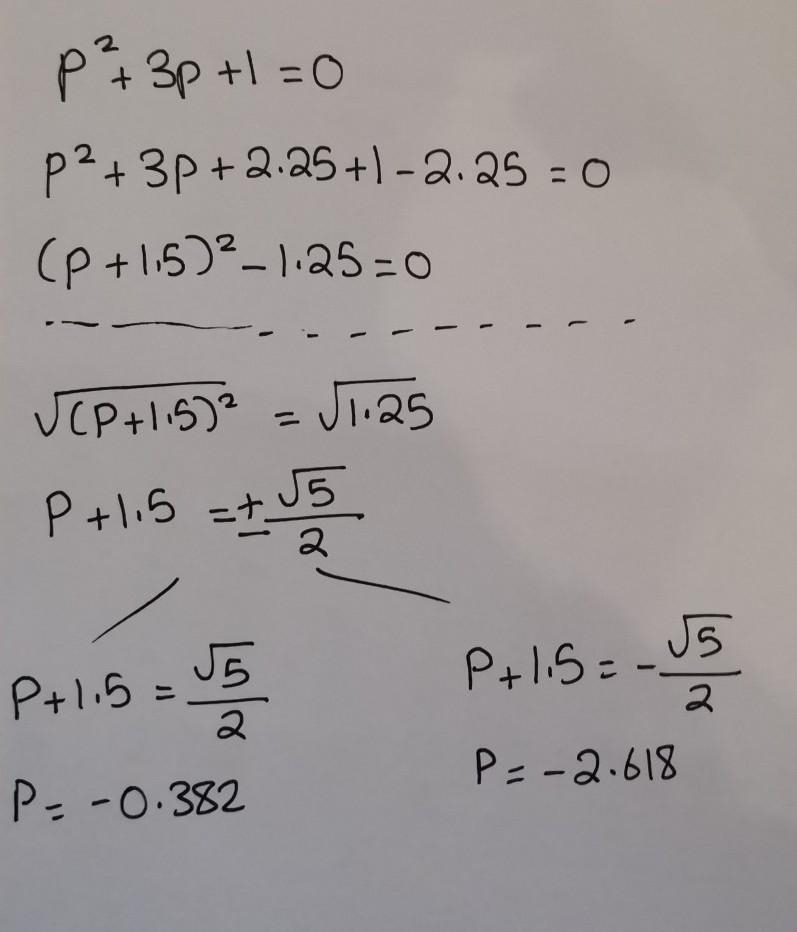 p² + 3p + 1 = 0
p² + 3p + 2.25 + 1 - 2.25 = 0
(p + 1.5)² - 1.25 = 0
√(P+1.5)² = √1.25
P + 1.5 = ± √5/2
P + 1.5 = √5/2
P + 1.5 = - √5/2
P = -0.382
P = -2.618